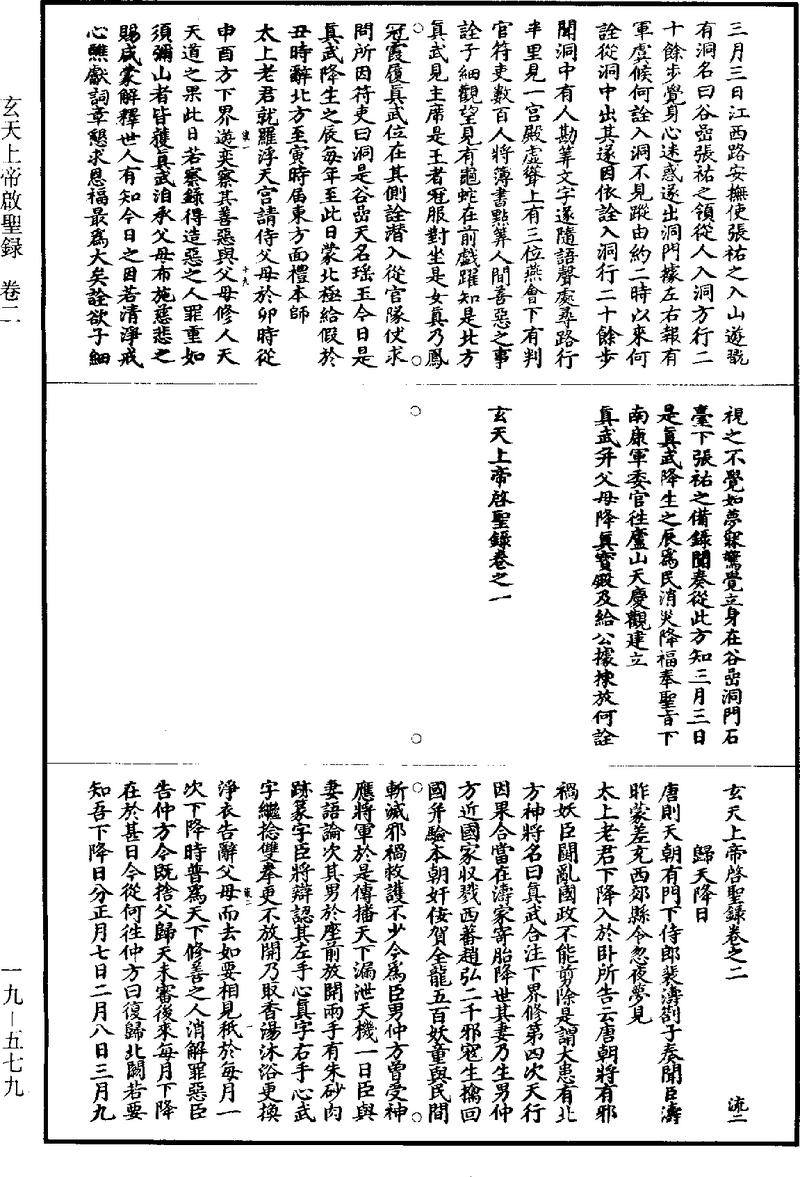 三月三日江西路安撫使張祐之入山遊翫
有洞名曰谷嵒張祐之領從人入洞方行二
十餘步覺身心迷惑遂出洞門據左右報有
軍虞候何詮入洞不見蹤由約二時以來何
詮從洞中出其遂因依詮入洞行二十餘步
聞洞中有人勘筭文字遂隨語聲處尋路行
半里見一宮殿虛聳上有三位燕會下有判
官符吏數百人將簿書點筭人間善惡之事
詮子細觀望見有龜蛇在前戲躍知是北方
真武見主席是王者冠服對坐是女真乃鳳
冠霞履真武位在其側詮潛入從官隊伏求
問所因符吏曰洞是谷嵒天名瑤玉今日是
真武降生之辰每年至此日蒙北極給假於
丑時辭北方至寅時屆東方面禮本師
太上老君就羅浮天宮請侍父母於卯時從
申酉方下界遊奕察其善惡與父母修人天
天道之果此日若察錄得造惡之人罪重如
須彌山者皆獲真武洎承父母布施慈悲之
賜咸蒙解釋世人有知今日之因若清淨戒
心醮獻詞章懇求恩福最為大矣詮欲子細
視之不覺如夢寐驚覺立身在谷嵒洞門石
臺下張祐之備錄聞奏從此方知三月三日
是真武降生之辰為民消災降福奉聖旨下
南康軍委官往廬山天慶觀建立
真武并父母降真寶殿及給公據揀放何詮
玄天上帝啓聖錄卷之一
玄天上帝啓聖錄卷之二
流二
歸天降日
唐則天朝有門下侍郎裴濤劄子奏聞臣濤
昨蒙差充西郊縣令忽夜夢見
太上老君下降入於卧所告云唐朝將有邪
禍妖臣闘亂國政不能剪除是謂大患有北
方神將名曰真武合注下界修第四次天行
因果合當在濤家寄胎降世其妻乃生男仲
方近國家収戮西蕃趙弘二千邪寇生擒回
國并驗本朝奸佞賀全龍五百妖童與民間
斬滅邪禍救護不少今為臣男仲方曾受神
應將軍於是傳播天下漏泄天機一日臣與
妻語論次其男於座前放開兩手有朱砂肉
跡篆字臣將辯認其左手心真字右手心武
字繼捻雙拳更不放開乃取香湯沐浴更換
淨衣告辭父母而去如要相見秖於每月一
次下降時普為天下修善之人消解罪惡臣
告仲方今既捨父歸天未審後來每月下降
在於甚日今從何往仲方曰復歸北闕若要
知吾下降日分正月七日二月八日三月九
玄天上帝啟聖録 卷二
一九—五七九